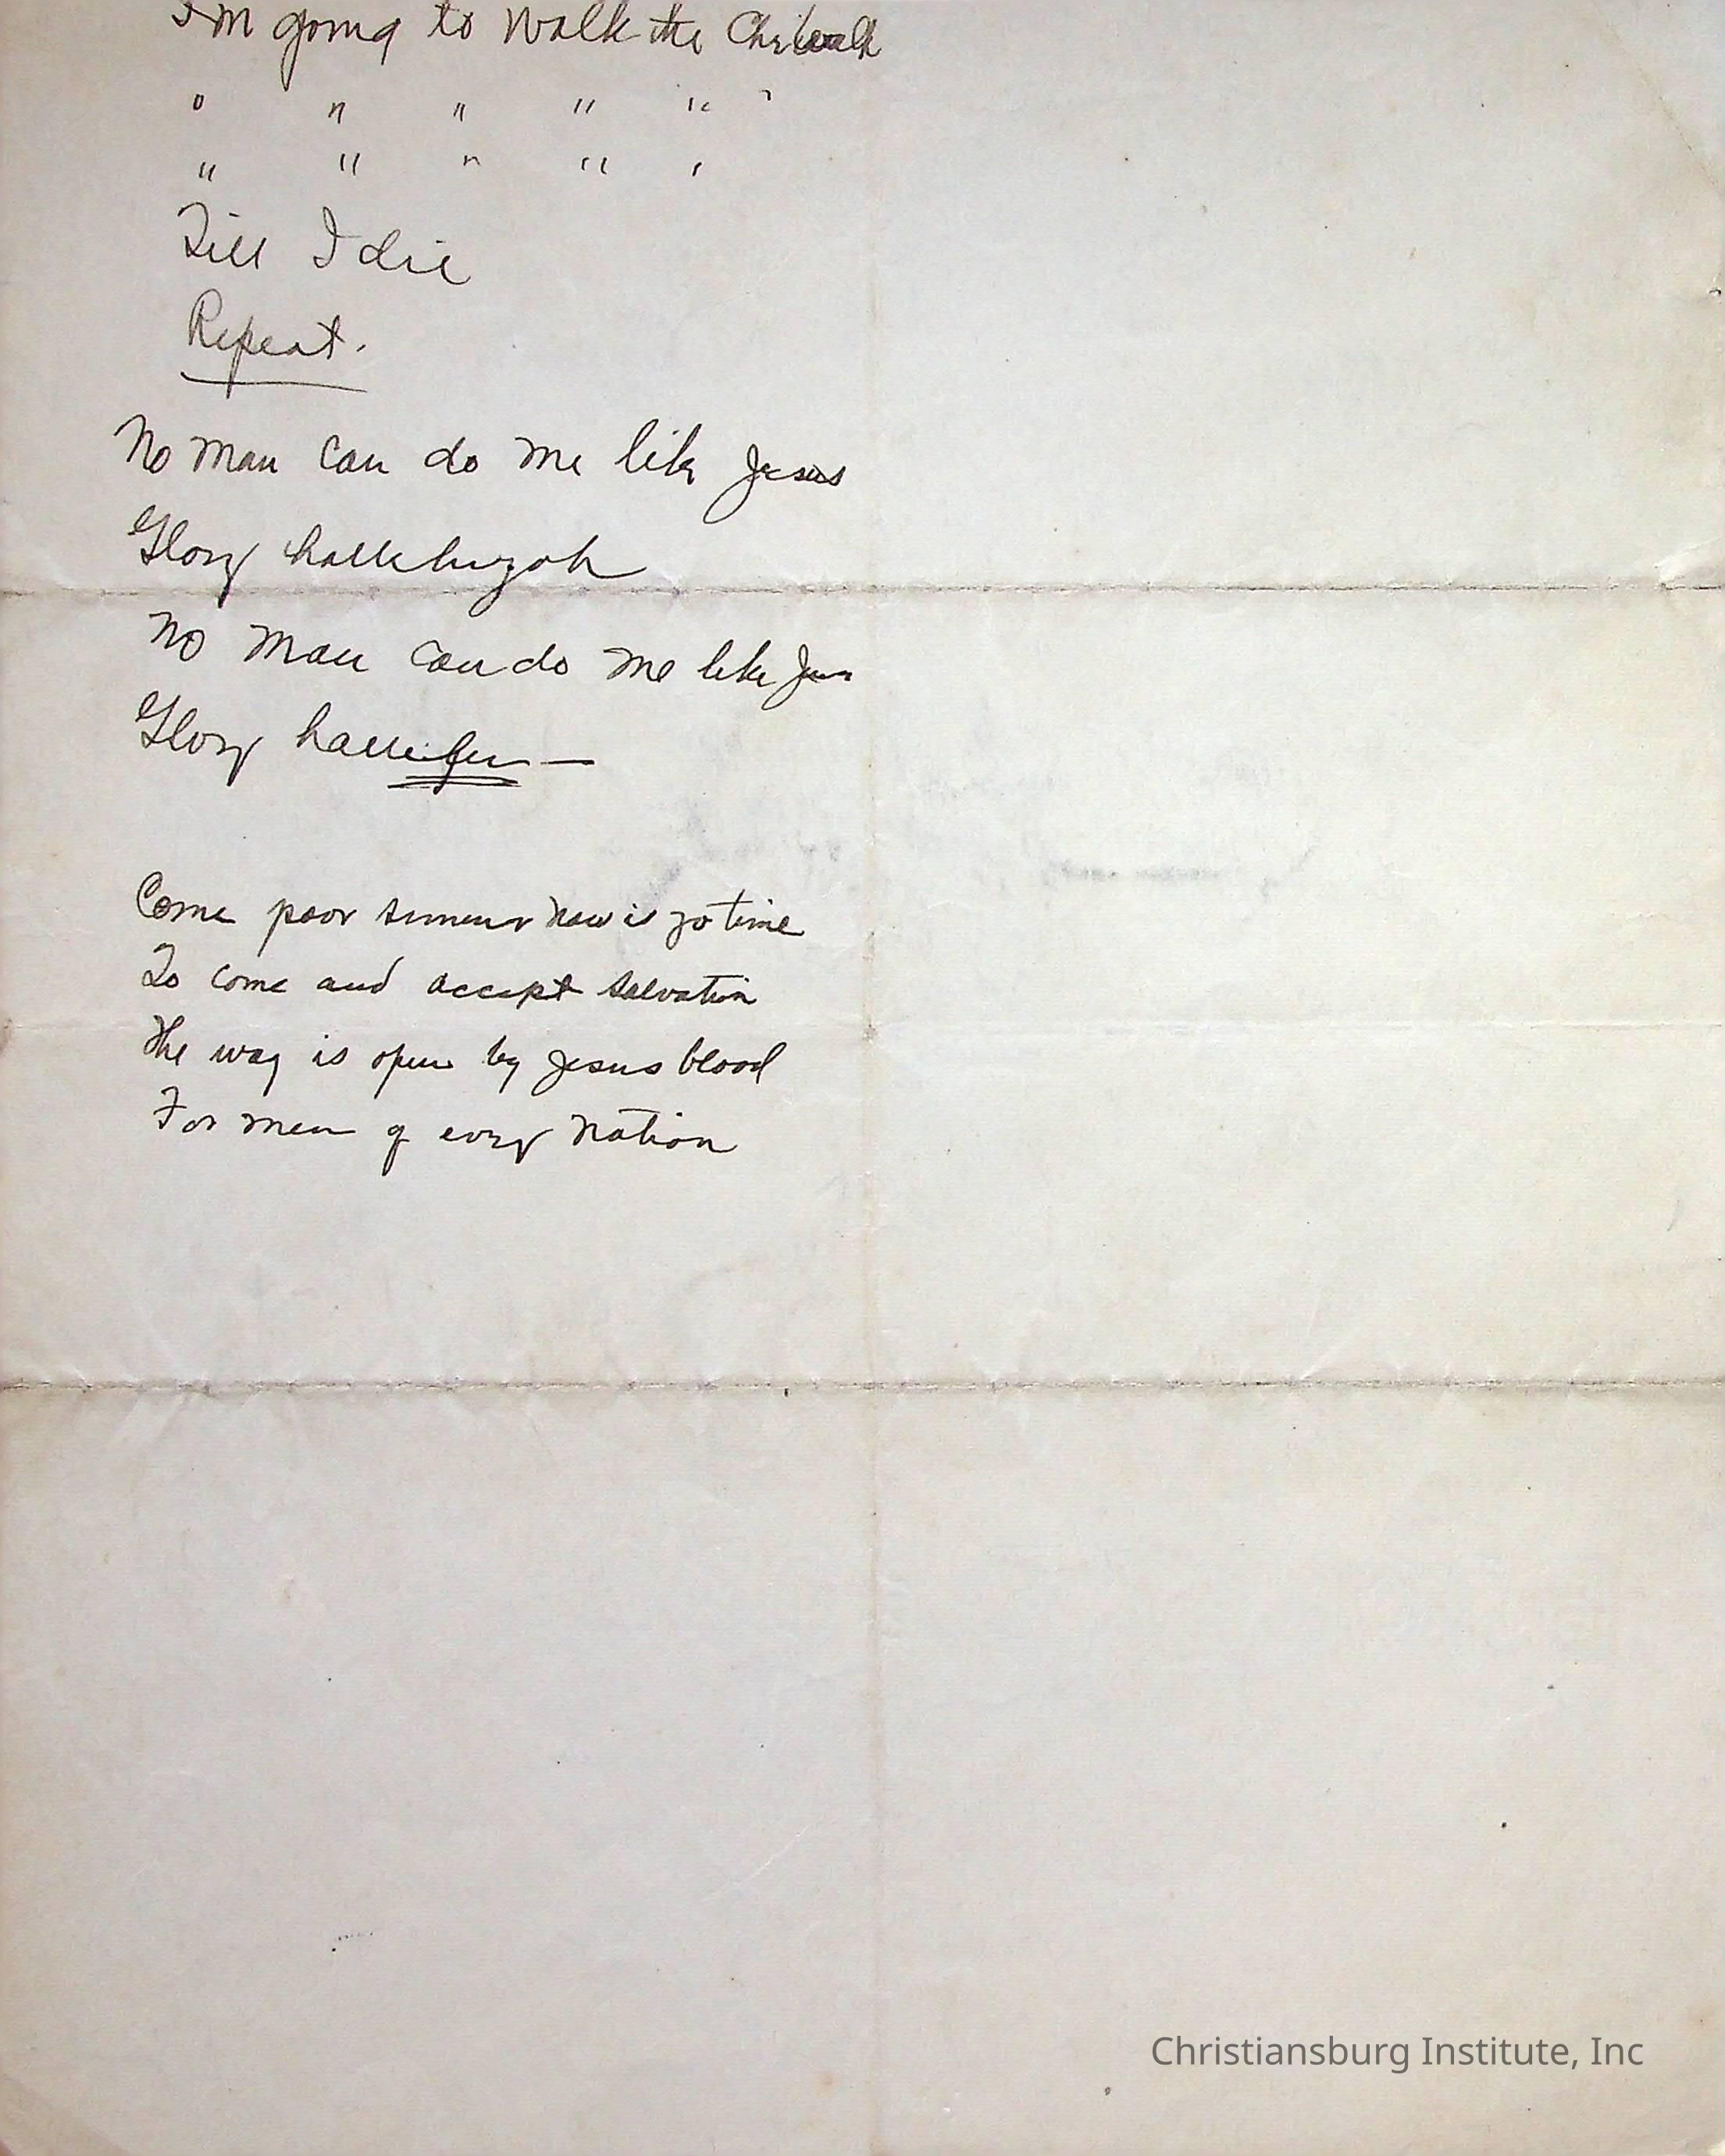 I'm going to Walk the Chr Walk
" " " " " "
" " " " "
Till I die
Repeat.
No man can do me like Jesus
Glory halleluyah
No man can do me like Jesus
Glory
Come poor sinner now is yo time
To come and accept salvation
The way is open by Jesus blood
For men of every nation
Christiansburg Institute, Inc